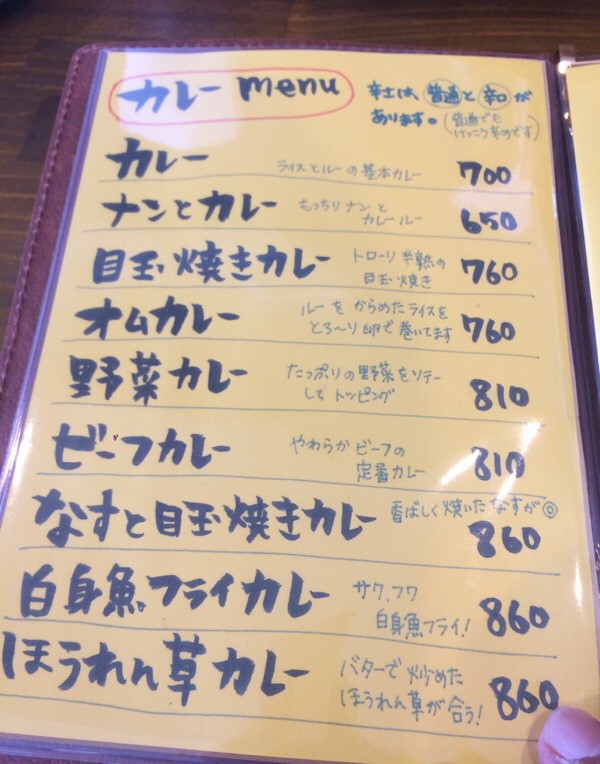 カレー menu
辛さは、普通と辛口が
あります。(普通でも
けっこう辛めです)
カレー ライスとルーの基本カレー 700
ナンとカレー もっちりナンと
カレールー 650
目玉焼きカレー トローリ半熟の
目玉焼き 760
オムカレー ルーをからめたライスを
とろ〜り卵で巻いてます 760
野菜カレー たっぷりの野菜をソテー
して トッピング 810
ビーフカレー やわらかビーフの
定番カレー 810
なすと目玉焼きカレー 香ばしく焼いたなすが◎
860
白身魚フライカレー サク、フワ
白身魚フライ! 860
ほうれん草カレー バターで炒めた
ほうれん草が合う! 860